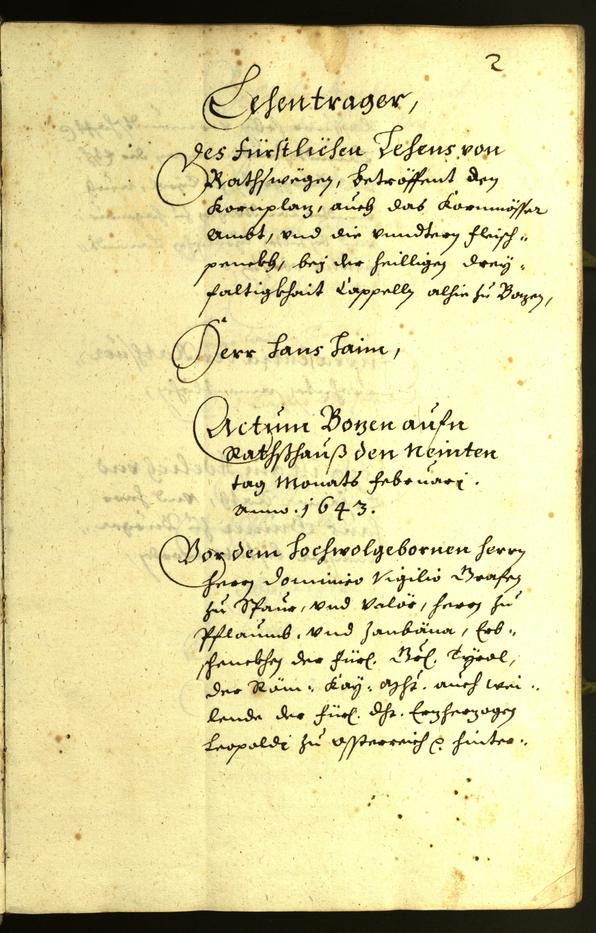 2
Lehentrager,
des fürstlichen Lehens von
Rathswegen, betröffent den
Kornplaz, auch das Kornmösser
Ambt, vnd die vnndtern fleisch-
penckh, bei der heilligen drey-
faltigkhait Cappelln alhie zu Bozen,
Herr Hans Haim,
Actum Bozen aufn
Rathshauß den Neinten
tag Monats Februarj.
anno. 1643.
Vor dem Hochwolgebornen Herrn
Herrn Dominico Vigilio Grafen
zu Spaur, vnd Valör, Herrn zu
Pflaumb, vnd Zambäna, Erb-
schenckhen der fürl. Grl. Tyrol,
der Röm: Kay: Mht. auch wei-
lende der fürl. Dht. Erzherzogen
Leopoldi zu Össterreich hinter-